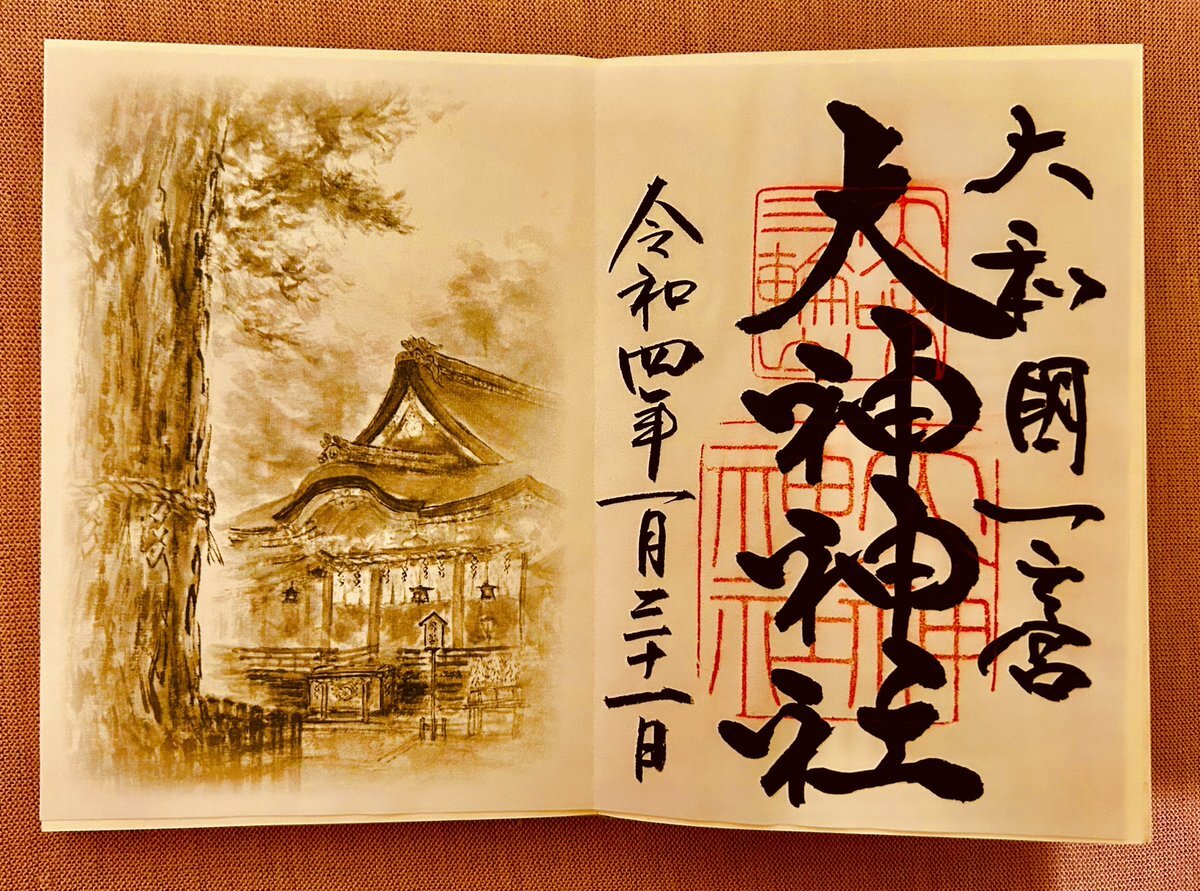 大和國一之宮
大神神社
令和四年一月三十一日
三輪